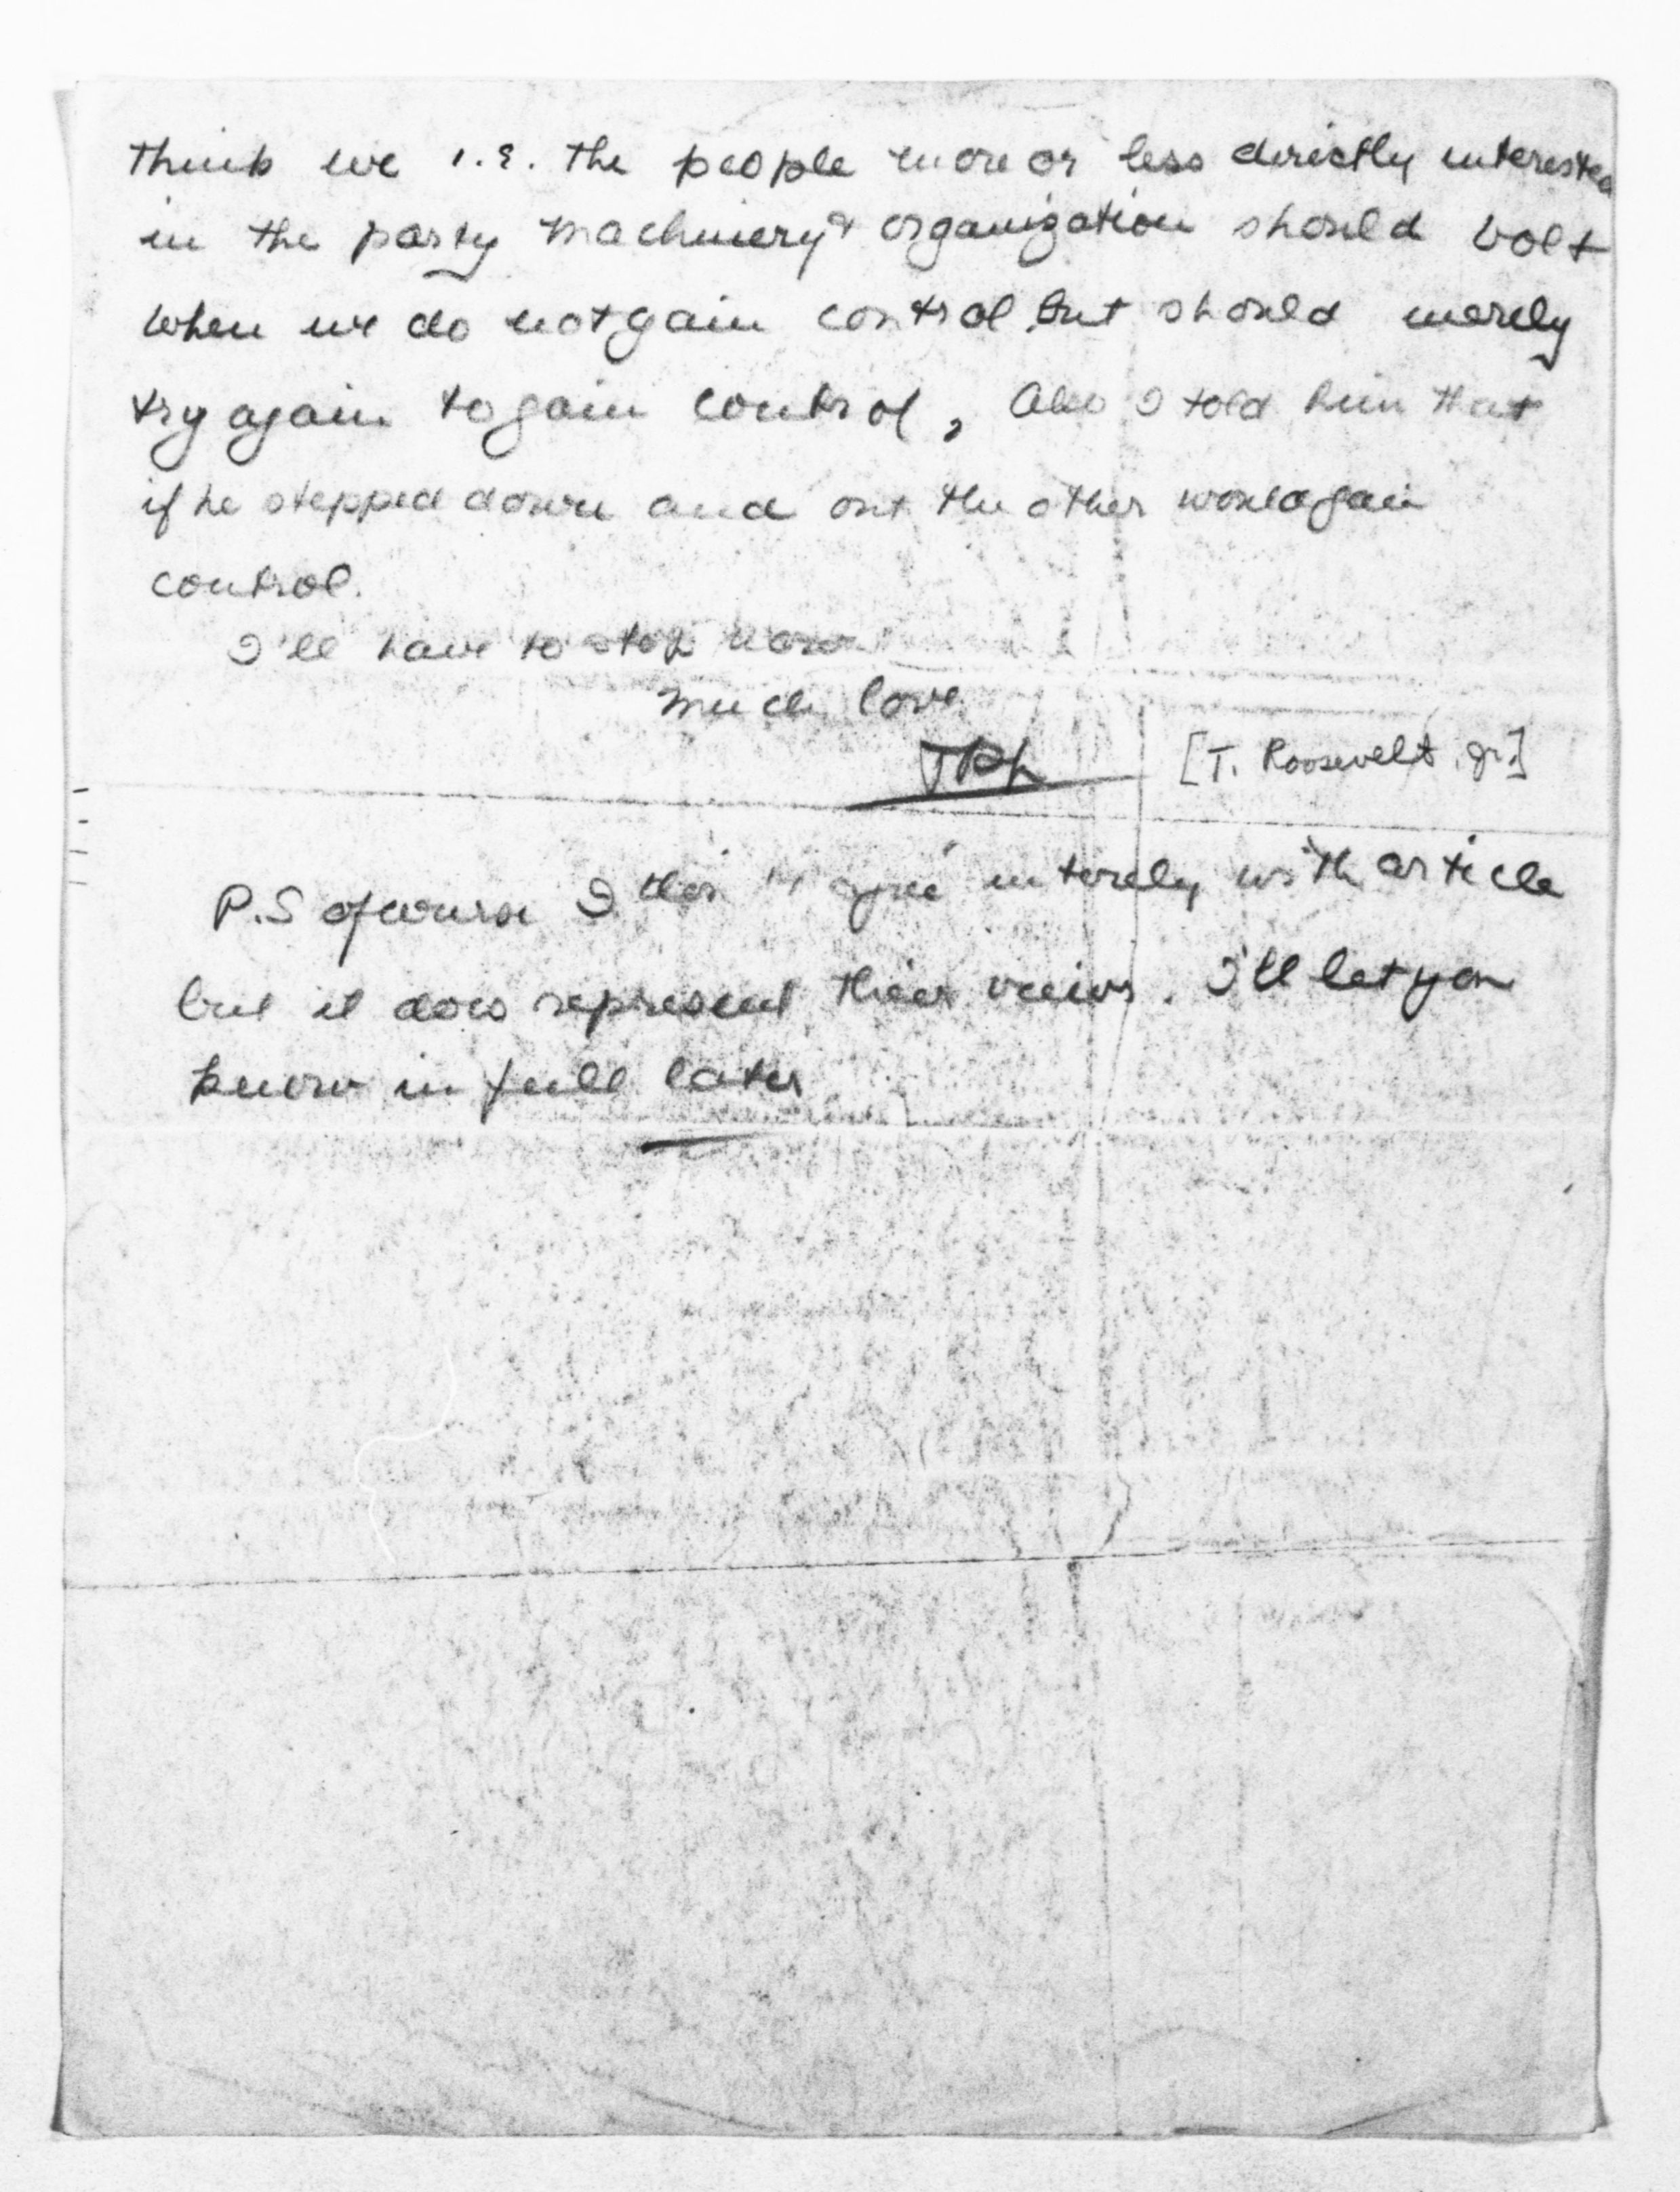 think we i.e. the people more or less directly interested
in the party machinery & organization should bolt
when we do not gain control, but should merely
try again to gain control, Also I told him that
if he stepped down and out the other would gain
control.
I'll have to stop now
Much love
[T. Roosevelt Jr.]
P.S of course I agree interely with article
but it does represent thier veiws. I'll let you
know in full later